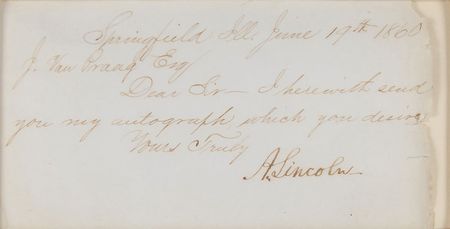 Springfield Ills June 19th 1860
J. Van Praag Esq
Dear Sir — I herewith send
you my autograph which you desire,
Yours Truly
A. Lincoln